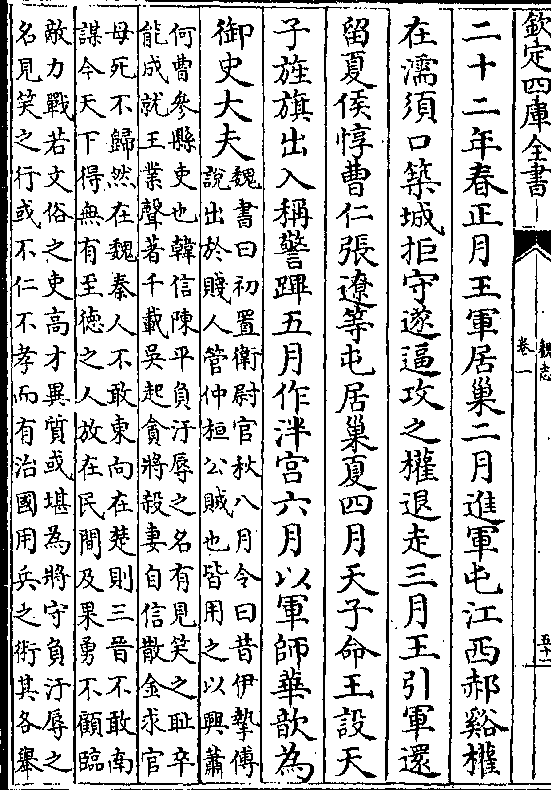 欽定四庫全書
魏志
卷一
二十二年春正月王軍居巢二月進軍屯江西郝谿權
在濡須口築城拒守遂逼攻之權退走三月王引軍還
留夏侯惇曹仁張遼等屯居巢夏四月天子命王設天
子旌旗出入稱警蹕五月作泮宮六月以軍師華歆為
御史大夫
魏書曰初置衛尉官秋八月令曰昔伊摯傅
說出於賤人管仲桓公賊也皆用之以興蕭
何曹參縣吏也韓信陳平負汙辱之名有見笑之恥卒
能成就王業聲著千載吳起貪將殺妻自信散金求官
母死不歸然在魏秦人不敢東向在楚則三晉不敢南
謀今天下得無有至德之人放在民間及果勇不顧臨
敵力戰若文俗之吏高才異質或堪為將守負汙辱之
名見笑之行或不仁不孝而有治國用兵之術其各舉